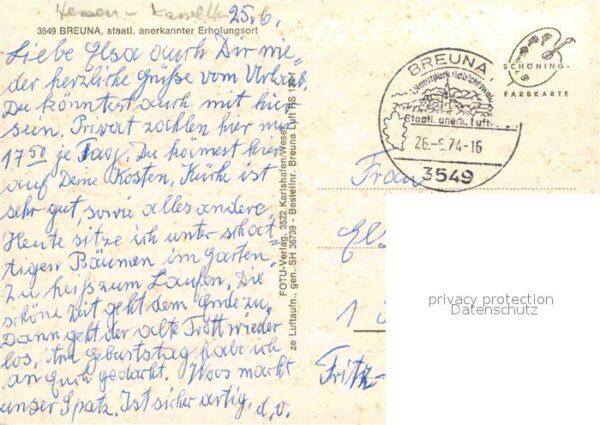 Hessen - Kassel
25.6.
3549 BREUNA, staatl. anerkannter Erholungsort
Liebe Elsa auch Dir wie-
der herzliche Grüße vom Urlaub.
Du könntest auch mit hier
sein. Privat zahlen hier nur
17 50 je Tag. Du kämest hier
auf Deine Kosten. Küche ist
sehr gut, sowie alles andere.
Heute sitze ich unter schat-
tigen Bäumen im Garten.
Zu heiß zum Laufen. Die
schöne Zeit geht dem Ende zu.
Dann geht der alte Trott wieder
los. Am Geburtstag habe ich
an Euch gedacht. Was macht
unser Spatz. Ist sicher artig. d. o.
FOTU-Verlag, 3522 Karlshafen/Weser
ze Luftaufn., gen. SH 36739 - Bestellnr. Breuna Luft RS
BREUNA
Staatl. anerk. Luft
26.-6.74-16
3549
SCHÖNING-
FARBKARTE
Frau
Els
1
Fritz-
privacy protection
Datenschutz